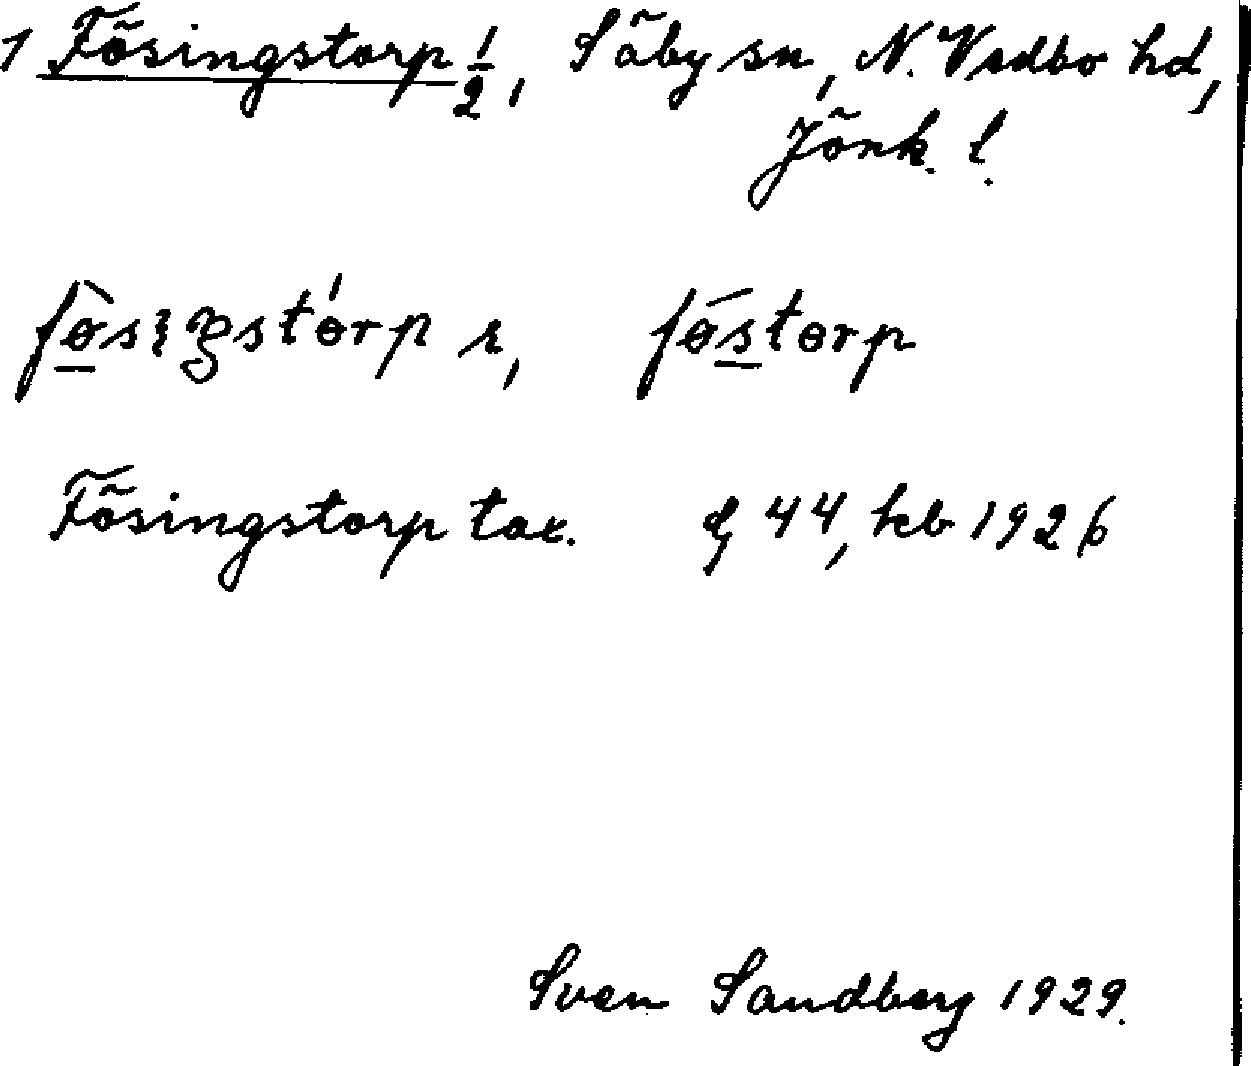 1 Fösingstorp 1/2, Säby sn, N. Vedbo hd,
Jönk. l.
Fösingstorp tax. J, 44, hcb 1926
Sven Sandberg 1929.